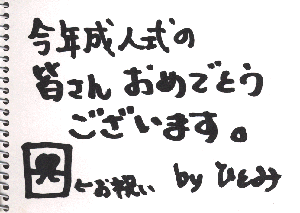 今年成人式の
皆さんおめでとう
ございます。
←お祝い by ひとみ